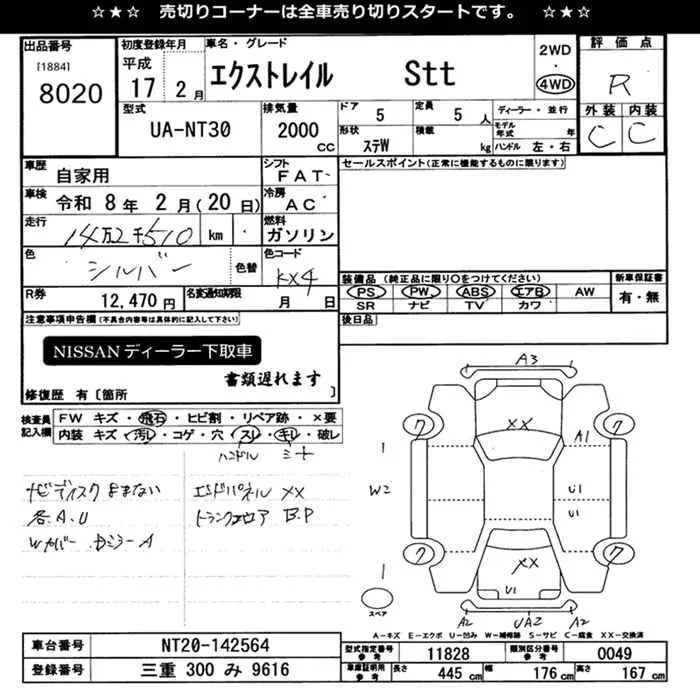 ☆★☆ 売切りコーナーは全車売り切りスタートです。 ☆★☆
出品番号
[1884]
8020
初度登録年月
平成
17 2月
車名・グレード
エクストレイル Stt
2WD
4WD
評価点
R
外装 内装
C C
型式
UA-NT30
排気量
2000
CC
ドア 5
定員 5 人
形状 ステW
積載 kg
ディーラー・並行
モデル年式 年
ハンドル 左・右
車歴
自家用
シフト
FAT
セールスポイント(正常に機能するものに限ります)
車検
令和 8年 2月(20日)
冷房
AC
走行
14万2千510 km
燃料
ガソリン
色
シルバー
色替
色コード
KX4
装備品(純正品に限り○をつけてください)
PS PW ABS エアB AW
SR ナビ TV カワ
新車保証書
有・無
R券
12,470円
名変通知期限
月 日
後日品
注意事項申告欄(不具合内容等は具体的に記入して下さい)
NISSANディーラー下取車
書類遅れます
修復歴 有〔箇所 〕
検査員記入欄
FW キズ・飛石・ヒビ割・リペア跡・×要
内装 キズ・汚レ・コゲ・穴・スレ・キレ・破レ
ハンドル シート
ナビディスクよまない
各A.U
Wカバー カミラーA
エンドパネル XX
トランクフロア B.P
A3
XX
7 7
A1
1
W2
U1
U1
7 7
XX
1
U1
スペア
A2 UA2 A2
A-キズ E-エクボ U-凹み W-補修跡 S-サビ C-腐食 XX-交換済
車台番号
NT20-142564
登録番号
三重 300 み 9616
型式指定番号
参考
11828
類別区分番号
参考
0049
車庫証明用
参考
長さ 445 cm
幅 176 cm
高さ 167 cm